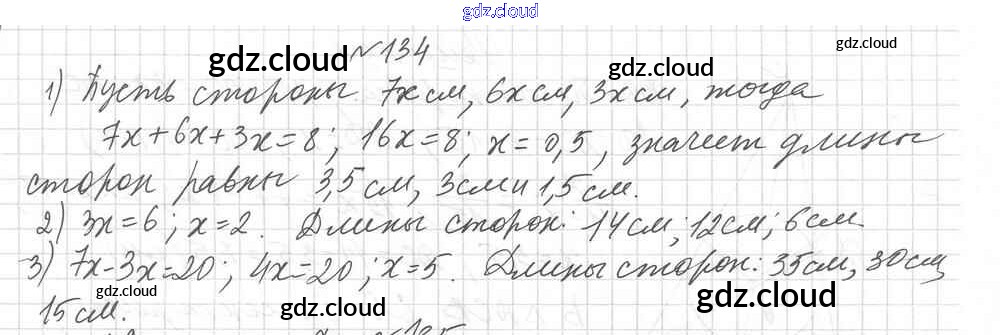 gdz.cloud
№134
gdz.cloud
gdz.cloud
gdz.cloud
1) Пусть стороны 7x см, 6x см, 3x см, тогда
7x+6x+3x=8; 16x=8; x=0,5, значит длины
сторон равны 3,5 см, 3 см и 1,5 см.
2) 3x=6; x=2. Длины сторон: 14 см; 12 см; 6 см
3) 7x-3x=20; 4x=20; x=5. Длины сторон: 35 см, 30 см,
15 см.
gdz.cloud
gdz.cloud
gdz.cloud
gdz.cloud